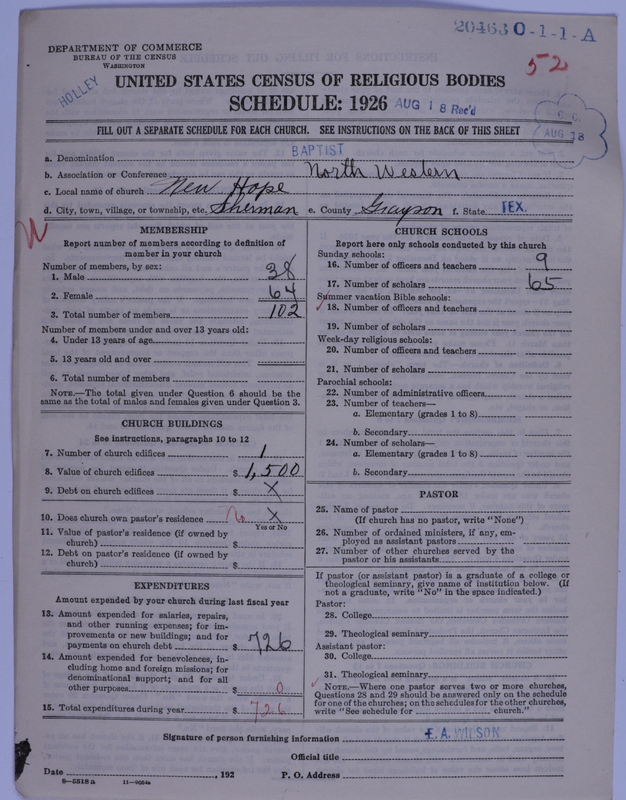 204630-1-1-A
DEPARTMENT OF COMMERCE
BUREAU OF THE CENSUS
WASHINGTON
52
HOLLEY
UNITED STATES CENSUS OF RELIGIOUS BODIES
SCHEDULE: 1926 AUG 18 Rec'd
C. C.
AUG 18
FILL OUT A SEPARATE SCHEDULE FOR EACH CHURCH. SEE INSTRUCTIONS ON THE BACK OF THIS SHEET
a. Denomination BAPTIST
b. Association or Conference North Western
c. Local name of church New Hope
d. City, town, village, or township, etc. Sherman e. County Grayson f. State TEX.
MEMBERSHIP
Report number of members according to definition of
member in your church
Number of members, by sex:
1. Male 38
2. Female 64
3. Total number of members 102
Number of members under and over 13 years old:
4. Under 13 years of age
5. 13 years old and over
6. Total number of members
NOTE.—The total given under Question 6 should be the
same as the total of males and females given under Question 3.
CHURCH BUILDINGS
See instructions, paragraphs 10 to 12
7. Number of church edifices 1
8. Value of church edifices $ 1,500
9. Debt on church edifices $ X
10. Does church own pastor's residence X
Yes or No
11. Value of pastor's residence (if owned by
church) $
12. Debt on pastor's residence (if owned by
church) $
EXPENDITURES
Amount expended by your church during last fiscal year
13. Amount expended for salaries, repairs,
and other running expenses; for im-
provements or new buildings; and for
payments on church debt $ 726
14. Amount expended for benevolences, in-
cluding home and foreign missions; for
denominational support; and for all
other purposes $ 0
15. Total expenditures during year $ 726
CHURCH SCHOOLS
Report here only schools conducted by this church
Sunday schools:
16. Number of officers and teachers 9
17. Number of scholars 65
Summer vacation Bible schools:
18. Number of officers and teachers
19. Number of scholars
Week-day religious schools:
20. Number of officers and teachers
21. Number of scholars
Parochial schools:
22. Number of administrative officers
23. Number of teachers—
a. Elementary (grades 1 to 8)
b. Secondary
24. Number of scholars—
a. Elementary (grades 1 to 8)
b. Secondary
PASTOR
25. Name of pastor
(If church has no pastor, write "None")
26. Number of ordained ministers, if any, em-
ployed as assistant pastors
27. Number of other churches served by the
pastor or his assistants
If pastor (or assistant pastor) is a graduate of a college or
theological seminary, give name of institution below. (If
not a graduate, write "No" in the space indicated.)
Pastor:
28. College
29. Theological seminary
Assistant pastor:
30. College
31. Theological seminary
NOTE.—Where one pastor serves two or more churches,
Questions 28 and 29 should be answered only on the schedule
for one of the churches; on the schedules for the other churches,
write "See schedule for church."
Signature of person furnishing information E. A. WILSON
Official title
Date , 192 P. O. Address
8—5518a 11—9064a